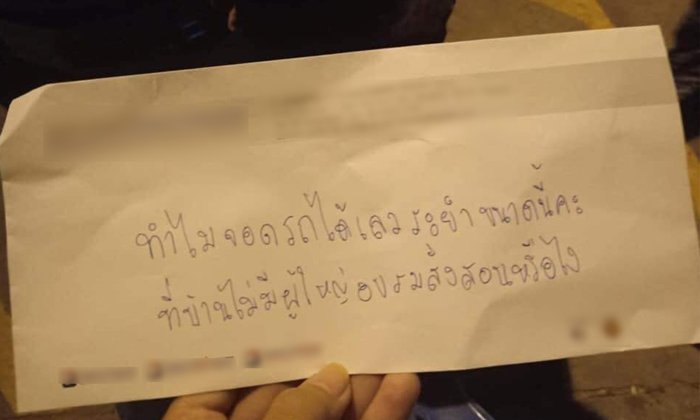 ทำไมจอดรถได้เลวระยำขนาดนี้คะ
ที่บ้านไม่มีผู้ใหญ่อบรมสั่งสอนหรือไง